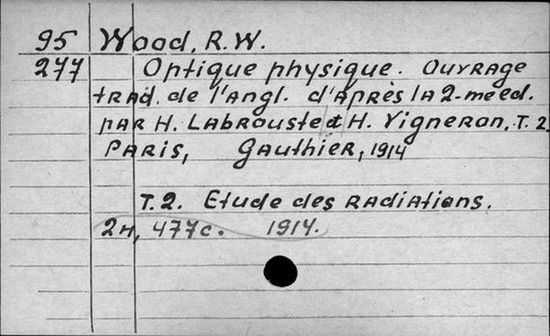 95 Wood, R.W.
277 Optique physique. Ouvrage
trad. de l'angl. d'après la 2-me ed.
par H. Labrouste et H. Vigneron, T. 2.
Paris, Gauthier, 1914
T. 2. Etude des radiations.
2н, 477с. 1914.